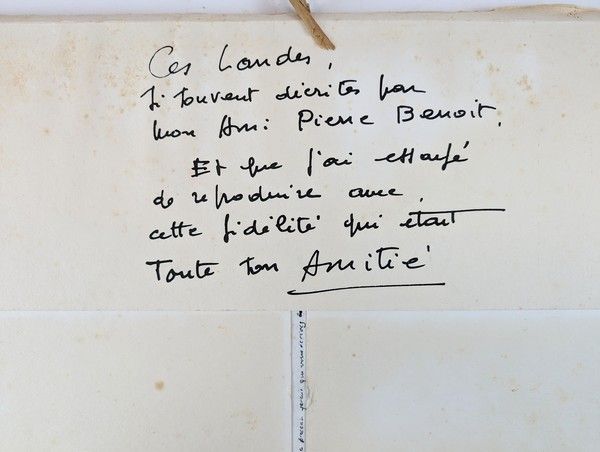 Ces Landes,
si souvent décrites par
mon Ami Pierre Benoit.
Et que j'ai essayé
de reproduire avec
cette fidélité qui était
Toute son Amitié